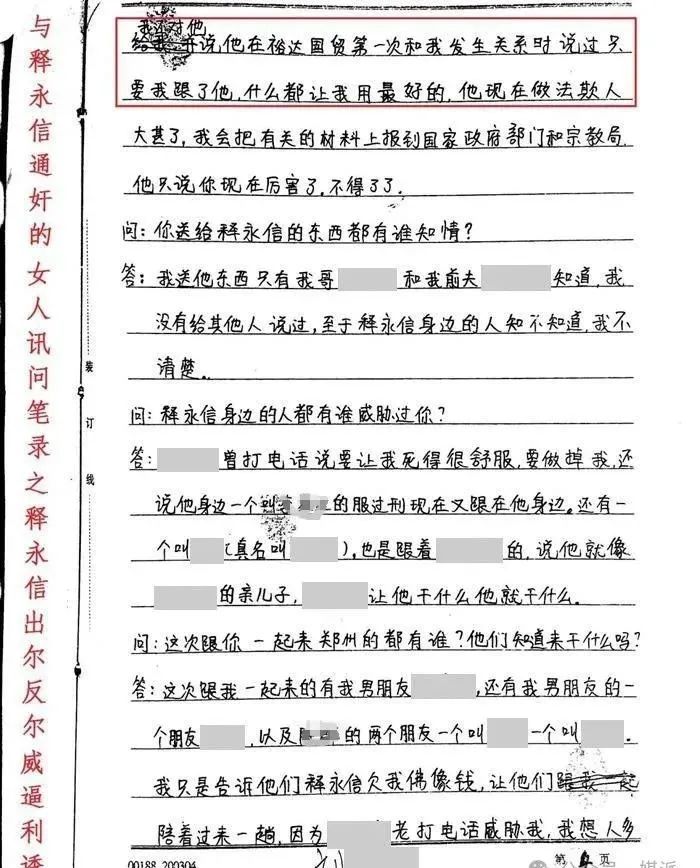 与释永信通奸的女人讯问笔录之释永信出尔反尔威逼利诱
我还对他
给我 并说他在裕达国贸第一次和我发生关系时说过只
要我跟了他，什么都让我用最好的，他现在做法欺人
大甚了，我会把有关的材料上报到国家政府部门和宗教局
他只说你现在厉害了，不得了了.
问：你送给释永信的东西都有谁知情？
答：我送他东西只有我哥 和我前夫 知道，我
没有给其他人说过，至于释永信身边的人知不知道，我不
清楚。
问：释永信身边的人都有谁威胁过你？
答： 曾打电话说要让我死得很舒服，要做掉我，还
说他身边一个 的服过刑现在又跟在他身边。还有一
个叫 （真名叫 ），也是跟着 的，说他就像
的亲儿子， 让他干什么他就干什么.
问：这次跟你一起来郑州的都有谁？他们知道来干什么吗？
答：这次跟我一起来的有我男朋友 ，还有我男朋友的一
个朋友 ，以及 的两个朋友一个叫 一个叫 .
我只是告诉他们释永信欠我佛像钱，让他们跟我一起
陪着过来一趟，因为 老打电话威胁我，我想人多
装订线
00188 200304
第 页
公众号 媒派